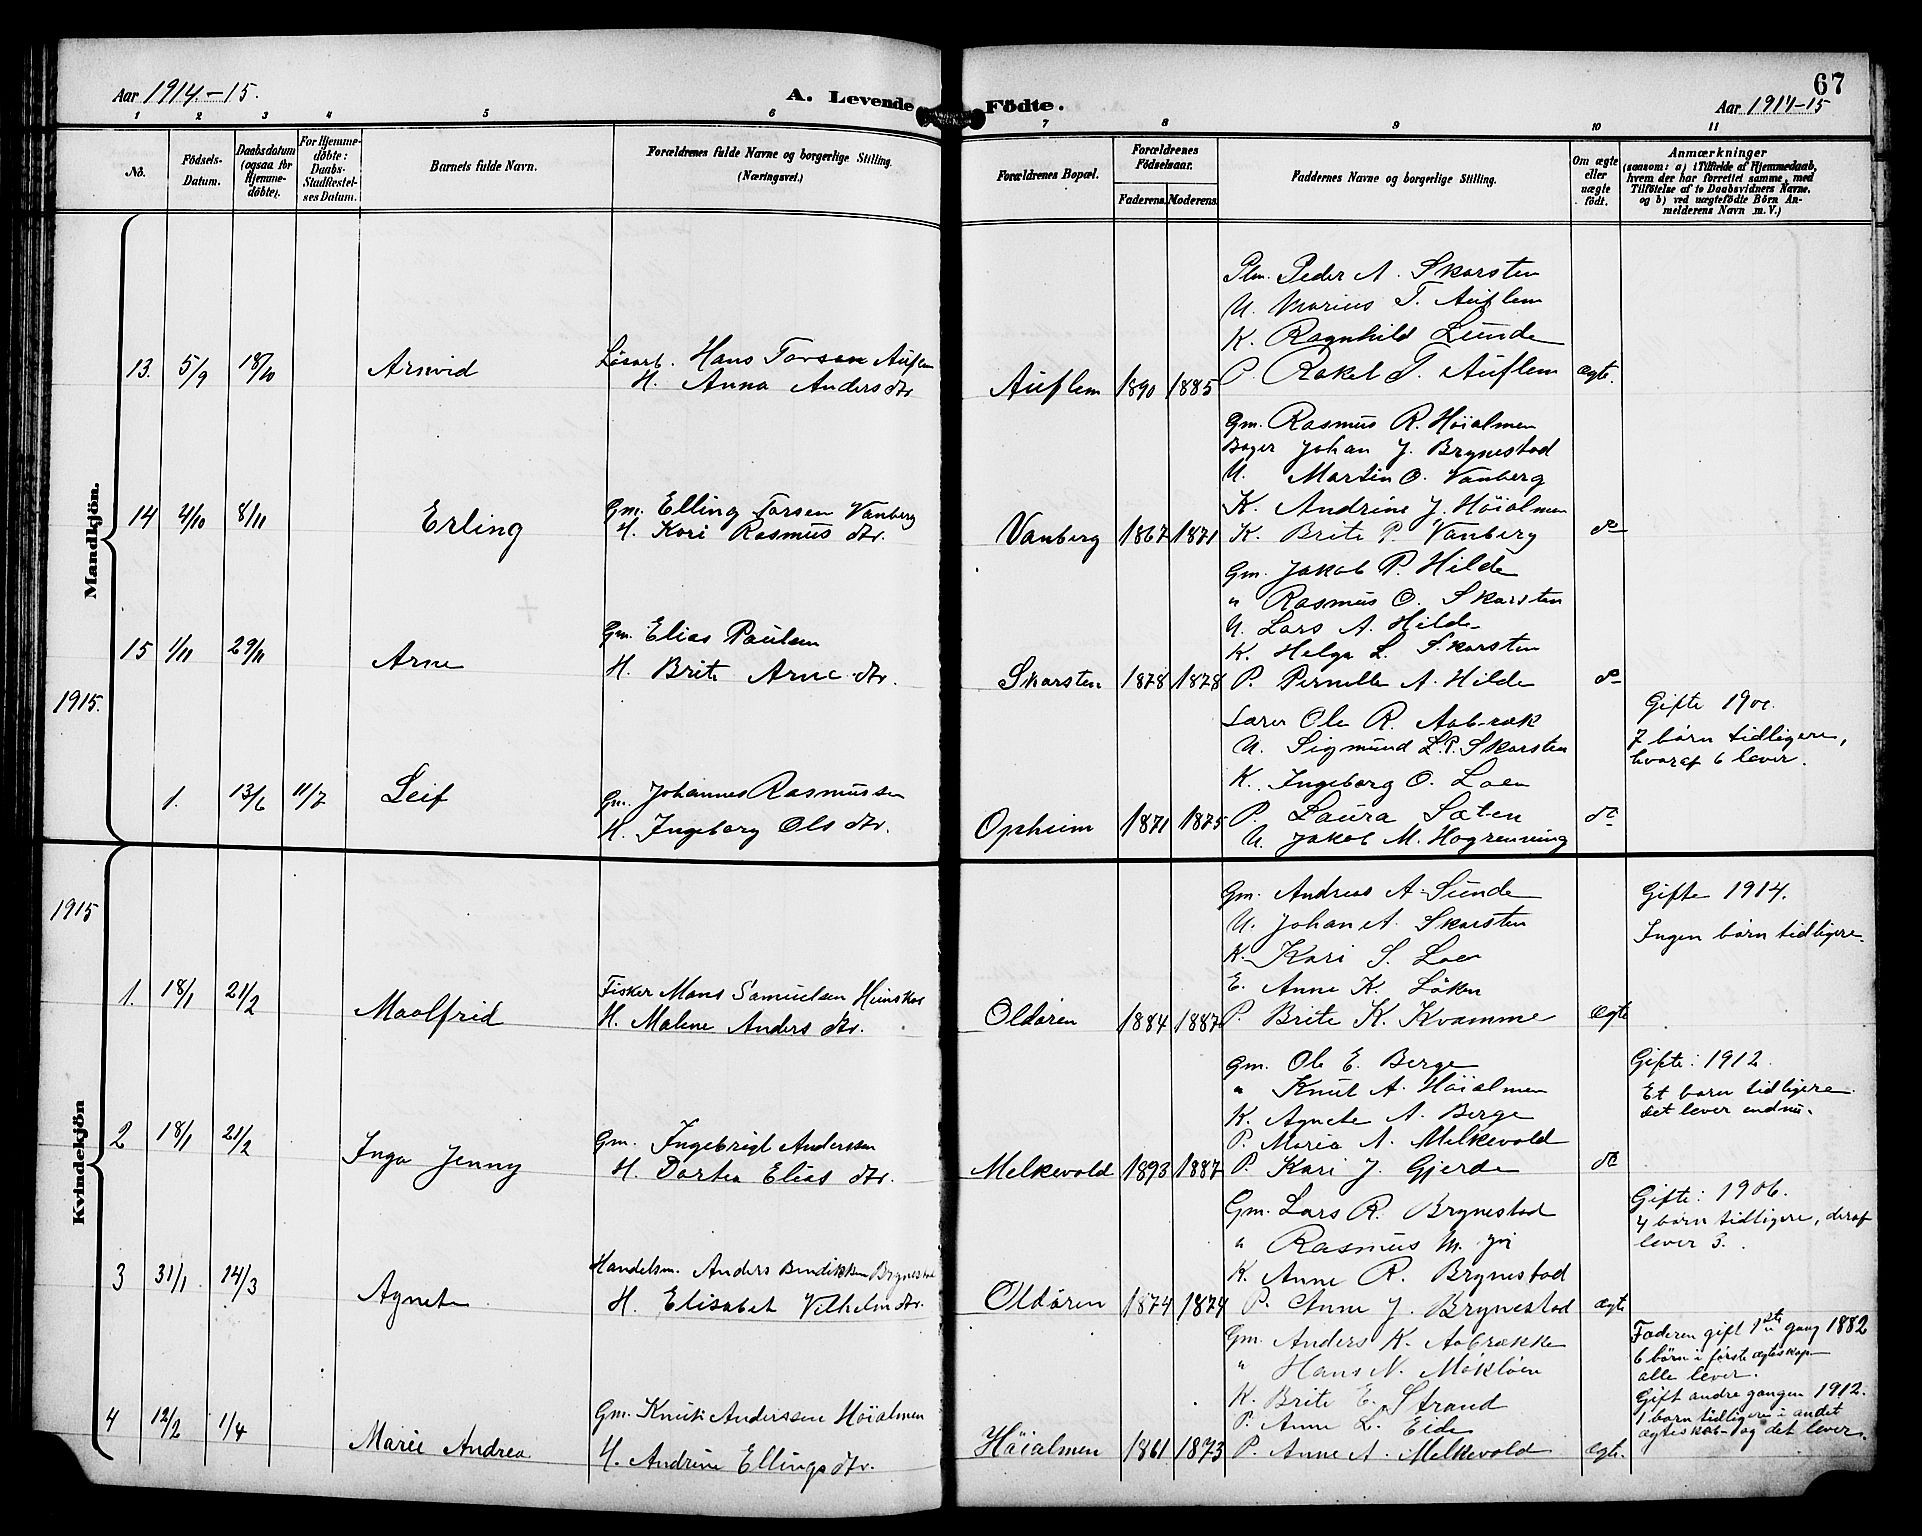 67
Aar 1914-15.
A. Levende Födte.
Aar 1914-15
1 2 3 4 5 6 7 8 9 10 11
No.
Födsels-Datum.
Daabsdatum (ogsaa for Hjemme-döbte).
For Hjemme-döbte: Daabs-Stadfæstel-ses Datum.
Barnets fulde Navn.
Forældrenes fulde Navne og borgerlige Stilling.
(Næringsvei.)
Forældrenes Bopæl.
Forældrenes Födselsaar.
Faderens. Moderens.
Faddernes Navne og borgerlige Stilling.
Om ægte eller uægte födt.
Anmærkninger
(saasom: a) i Tilfælde af Hjemmedaab,
hvem der har forrettet samme, med
Tilföielse af to Daabsvidners Navne.
og b) ved uægtefödte Börn An-
melderens Navn m. V.)
Mandkjön.
13. 5/9 18/10 Arnvid
Løsarb. Hans Torsen Auflem
H. Anna Andersdtr
Auflem 1890 1885
Plm. Peder A. Skarsten
U. Marius T. Auflem
K. Ragnhild Sunde
P. Rakel T. Auflem ægte.
14 4/10 8/11 Erling
Gm. Elling Torsen Vanberg
H. Kari Rasmus dtr.
Vanberg 1867 1871
Gm. Rasmus R. Höialmen
Bager Johan J. Brynestad
U. Martin O. Vanberg
K. Andrine J. Höialmen
K. Brite P. Vanberg do
15 1/11 29/11 Arne
Gm. Elias Paulsen
H. Brite Arne dtr.
Skarsten 1878 1878
Gm. Jakob P. Hilde
" Rasmus O. Skarsten
U. Lars A. Hilde
K. Helga L. Skarsten
P. Pernille A. Hilde do
1915.
1. 13/6 11/7 Leif
Gm. Johannes Rasmussen
H. Ingeborg Ols dtr.
Opheim 1871 1875
Lærer Ole R. Aabræk
U. Sigmund L.P. Skarsten
K. Ingeborg O. Loen
P. Laura Sæten do
U. Jakob M. Hogrenning
Gifte 190
7 børn tidligere,
hvoraf 6 lever.
1915
Kvindekjön
1. 18/1 21/2 Maalfrid
Fisker Mons Samuelsen
H. Malene Anders dtr.
Oldøren 1884 1887
Gm. Andreas A. Sunde
U. Johan A. Skarsten
K. Kari S. Loen
E. Anne K. Løken
P. Brite K. Kvamme ægte
Gifte 1914.
Ingen børn tidligere.
2 18/1 21/2 Inga Jenny
Gm. Ingebrigt Anderssen
H. Dortea Elias dtr.
Melkevold 1893 1887
Gm. Ole E. Berge
" Knut A. Höialmen
K. Agnete A. Berge
P. Maria A. Melkevold
P. Kari J. Gjerde do
Gifte: 1912.
Et barn tidligere
det lever endnu.
3 31/1 14/3 Agnete
Handelsm. Anders Bendiksen Brynestad
H. Elisabet Vilhelmdtr.
Oldøren 1874 1874
Gm. Lars R. Brynestad
" Rasmus M. Gri
K. Anne R. Brynestad
P. Anne J. Brynestad ægte
Gifte: 1906.
4 børn tidligere, deraf
lever 3.
4 12/2 1/4 Marie Andrea
Gm. Knut Anderssen Höialmen
H. Andrine Ellings dtr.
Höialmen 1861 1873
Gm. Anders K. Aabrække
" Hans N. Mökløen
K. Brite E. Strand
P. Anne L. Eide
P. Anne A. Melkevold ægte.
Faderen gift 1ste gang 1882
6 børn i første ægteskap
alle lever.
Gift andre gangen 1912.
1 barn tidligere i andet
ægteskab og det lever.